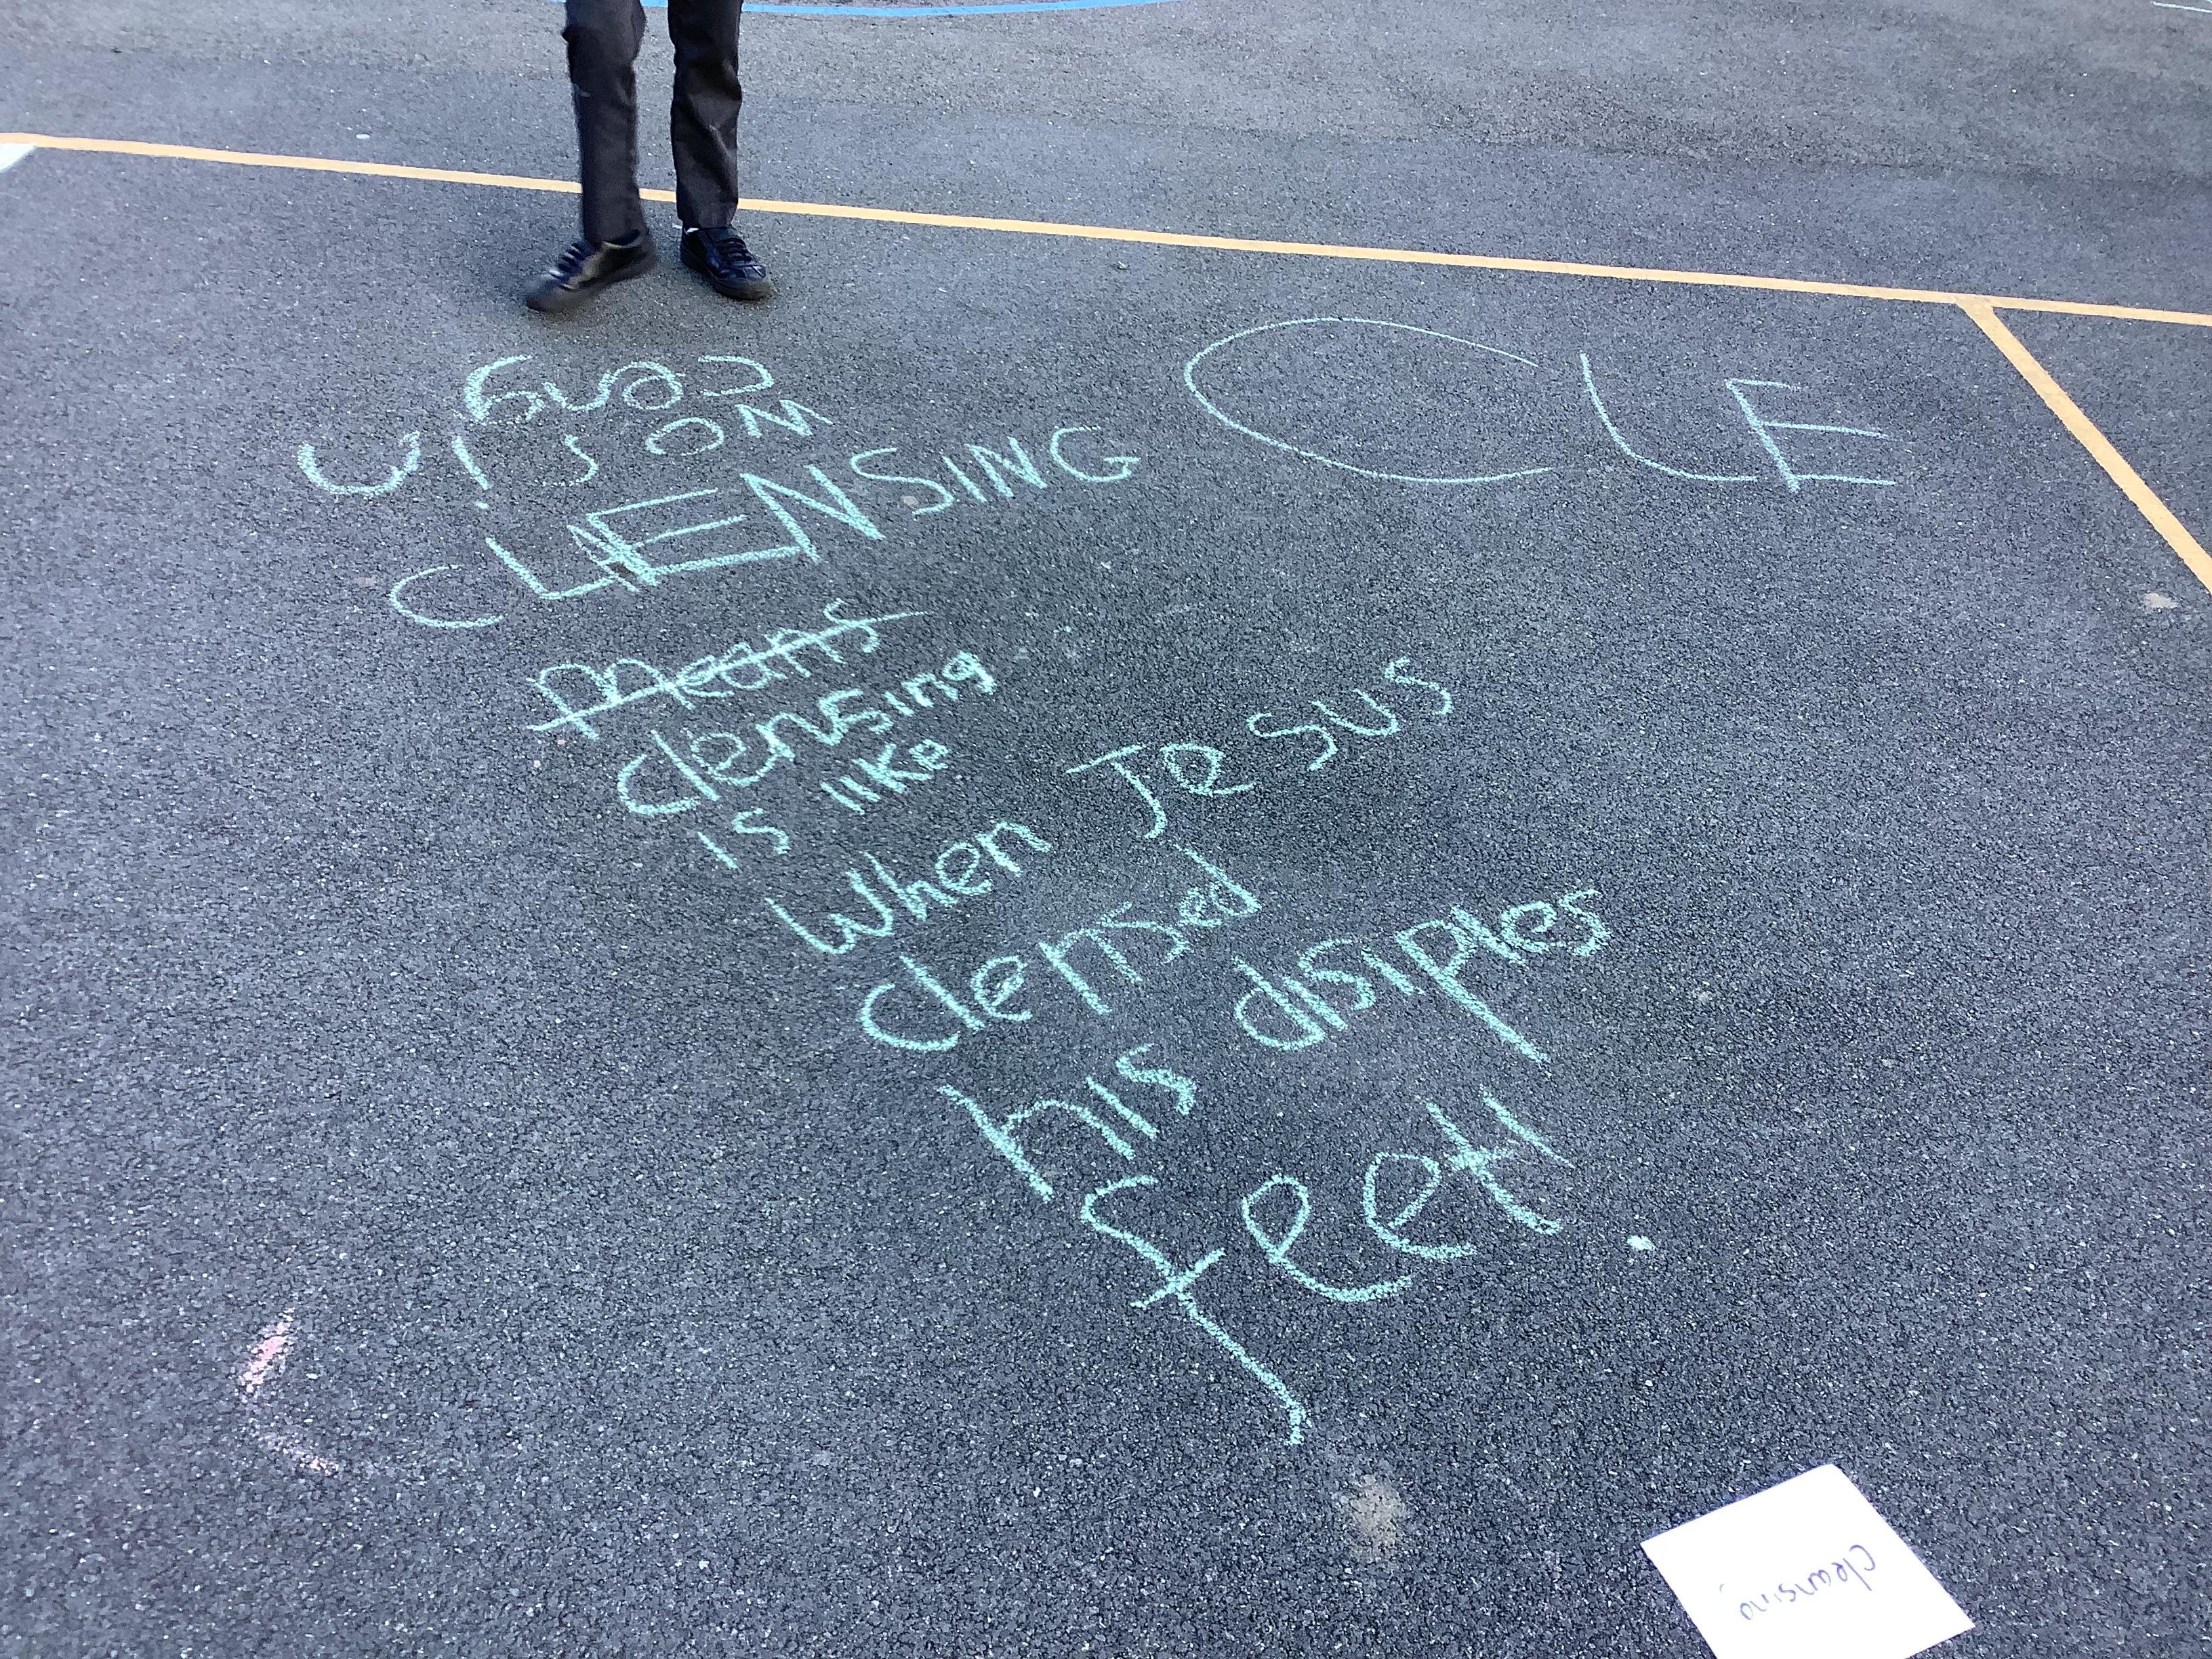 CLE
CLENSING
means
clensing
is like
when Jesus
clensed
his disiples
feet.
cleansing